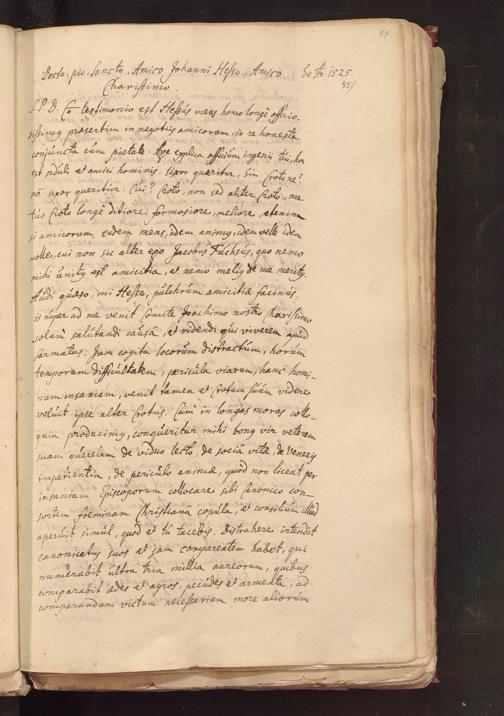 89
Docto, pio, Sancto, Amico Johanni Hesso, Amico 1525.
Charissimo. 451
S. P. D. testimonio est Hessus meus homo longe officio-
sissimus presertim in negotiis amicorum, in re honesta
conjuncta cum pietate. Age explica officium ingenii tui, hoc
est seduli et amici hominis. Uxor queritur, Croto ne?
nō uxor queritur. Cui? Croto, non sed alter Croto, me
tuo Croto longe ditiore, formosiore, meliore, etenim
si amicorum eadem mens, idem animus, idem velle idem
nolle, cui non sit alter ego Jacobus Fuchsus, quo nemo
mihi unitus est amicitia, et nemo melius de me meritus
Audi quæso, mi Hesse, pulchrum amicitiæ facinus,
is nuper ad me venit Comite Joachimo nostro charissimo
solum salutandi causa, et videndi qui viverem apud
Sarmatas. Jam cogita locorum distractum, horum
temporum difficultatem, pericula viarum, hanc homi-
num insaniam, venit tamen et Crotum suum videre
voluit ipse alter Crotus. Cum in longas moras collo-
quia producimus, conqueritur mihi bonus vir veterem
suam querelam de viduo lecto, de socia vitæ, de Veneris
impatientia, de periculo animæ, quod non licent per
insaniam Episcoporum collocare sibi Canonico con-
sortem foeminam Christiana copula, et consilium illud
aperuit simul, quod et tu tacebis. Distrahere intendit
canonicatus suos et jam comparentem habet, qui
numerabit ultra tria millia aureorum, quibus
comparabit ædes et agros, pecudes et armenta, ad
comparandum victum necessarium more aliorum